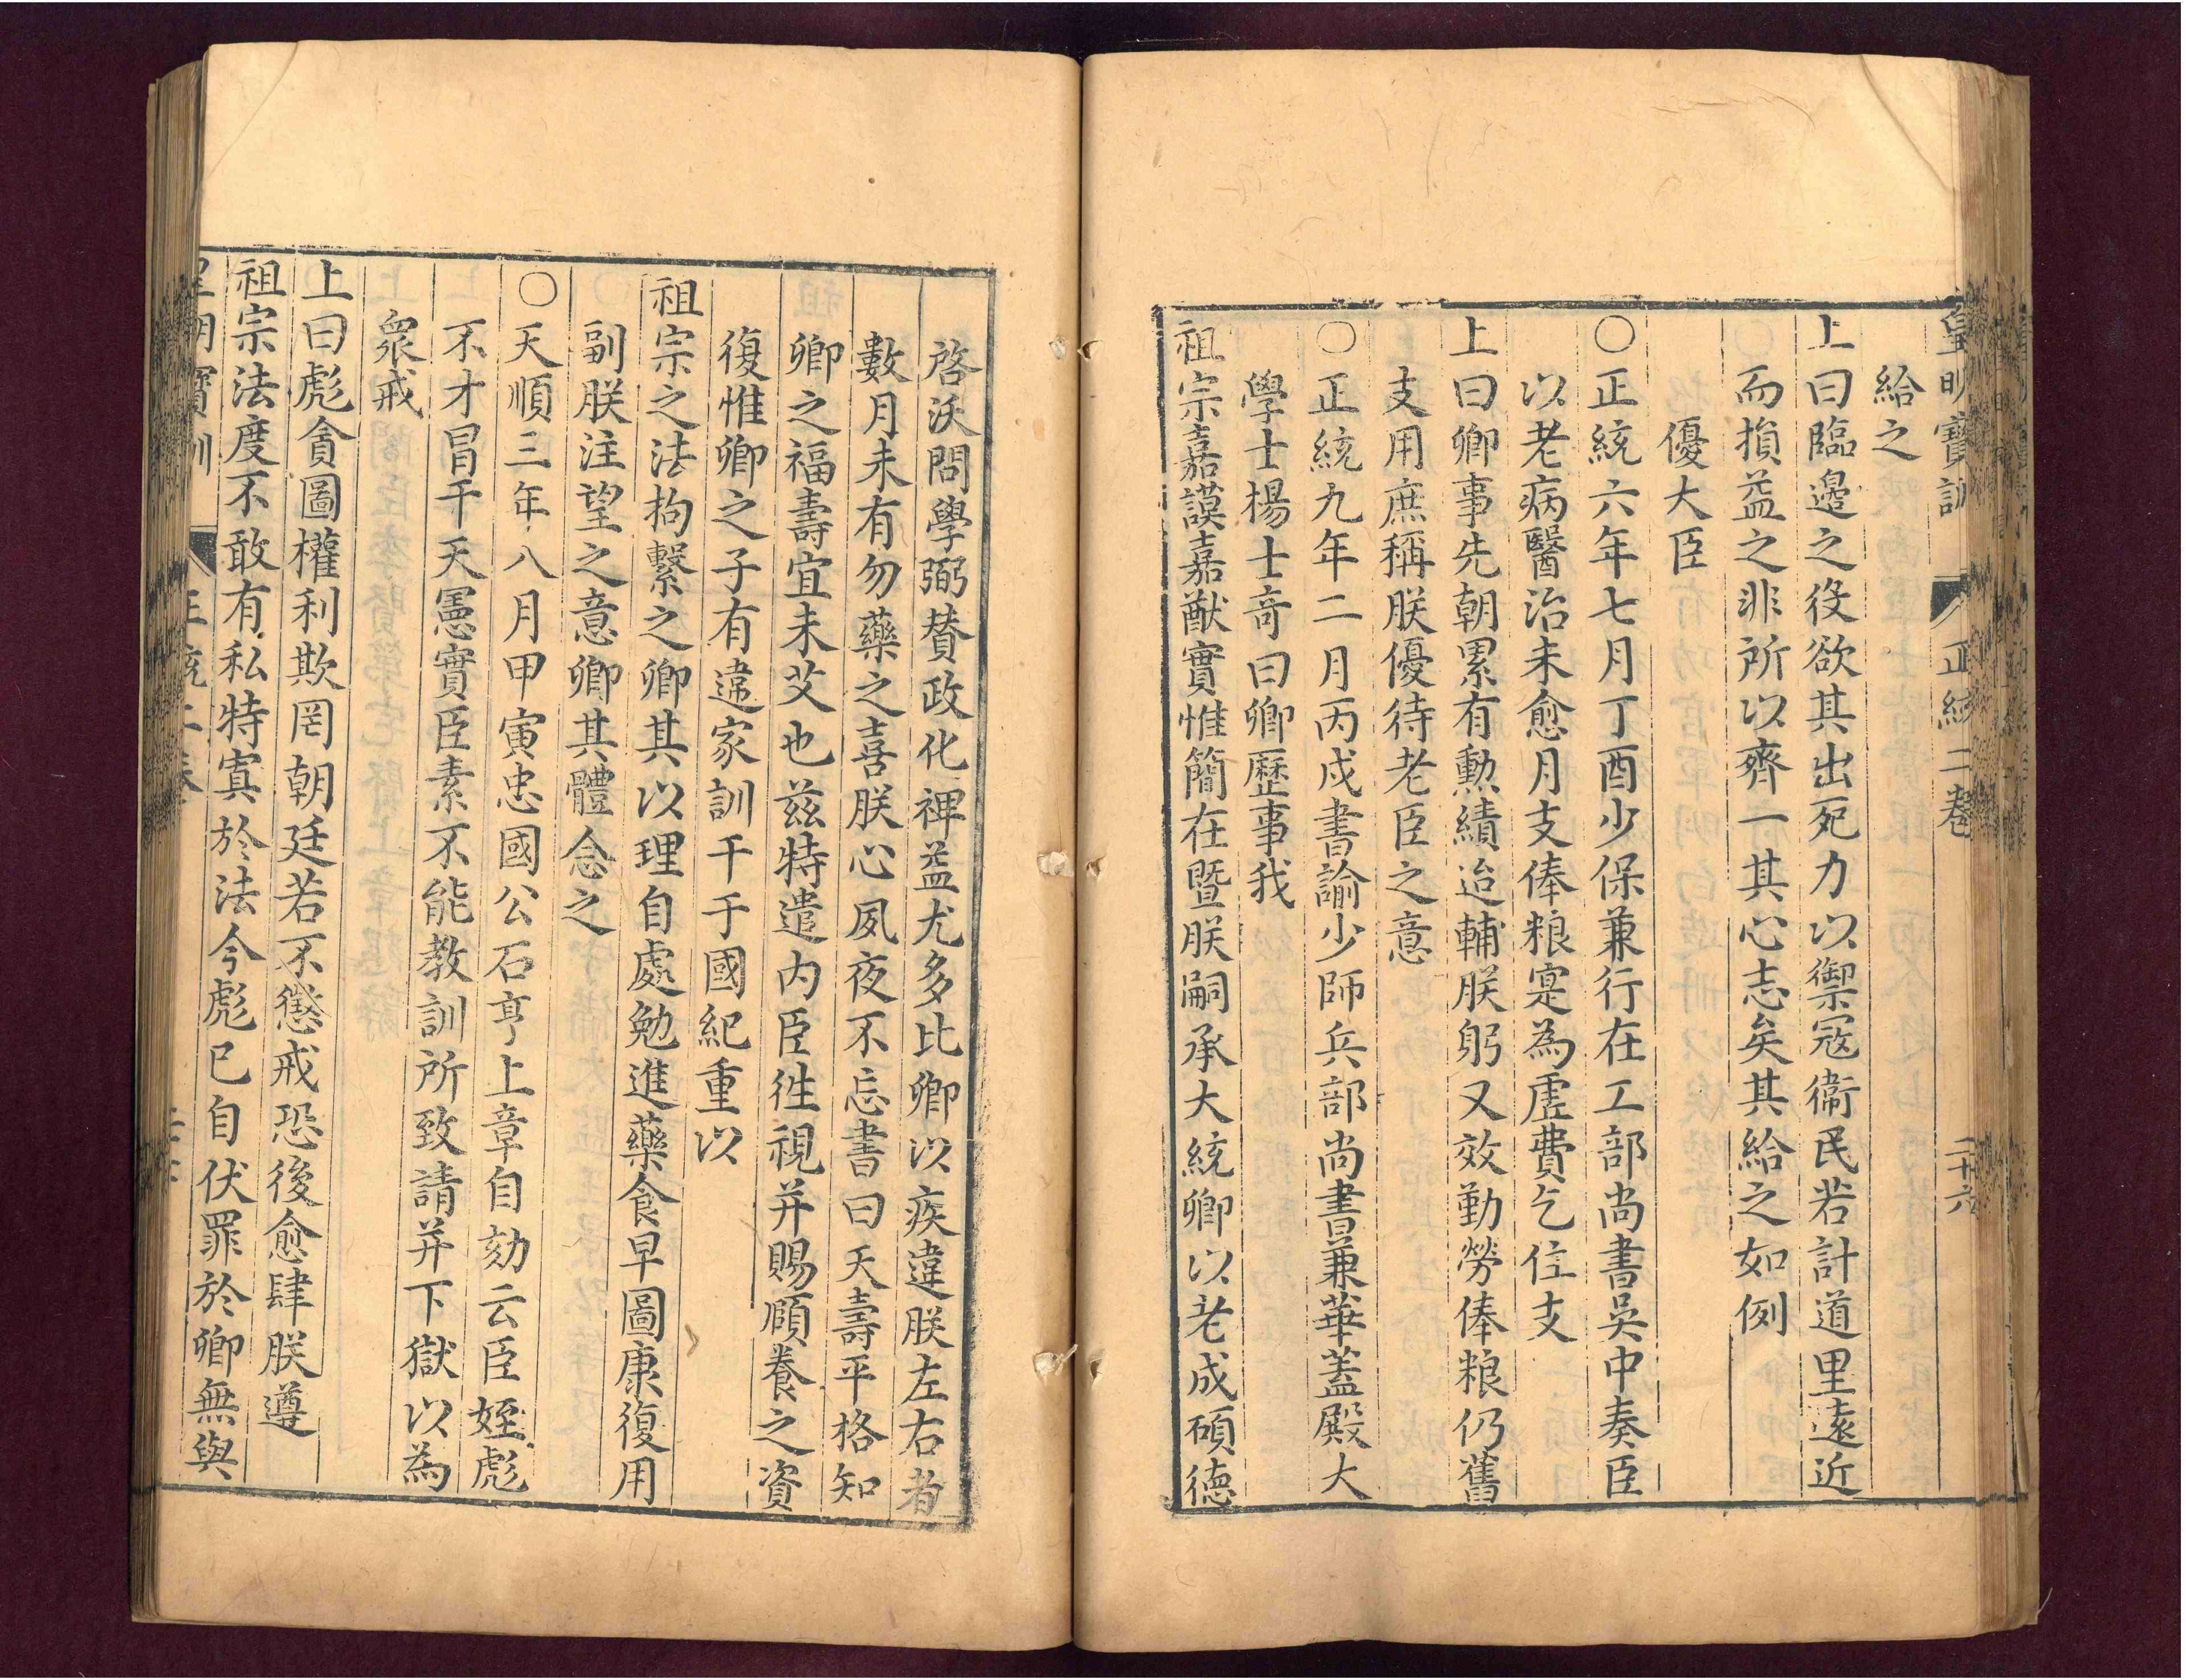 皇明寶訓 正統二卷 二十六
給之
上曰臨邊之役欲其出死力以禦寇衞民若計道里遠近
而損益之非所以齊一其心志矣其給之如例
優大臣
○正統六年七月丁酉少保兼行在工部尚書吳中奏臣
以老病醫治未愈月支俸粮寔為虛費乞住支
上曰卿事先朝累有勳績迨輔朕躬又效勤勞俸粮仍舊
支用庶稱朕優待老臣之意
○正統九年二月丙戌書諭少師兵部尚書兼華蓋殿大
學士楊士奇曰卿歷事我
祖宗嘉謨嘉猷實惟簡在暨朕嗣承大統卿以老成碩德
啓沃問學弼賛政化裨益尤多比卿以疾違朕左右者
數月未有勿藥之喜朕心夙夜不忘書曰天壽平格知
卿之福壽宜未艾也兹特遣内臣徃視并賜頤養之資
復惟卿之子有違家訓干于國紀重以
祖宗之法拘繫之卿其以理自處勉進藥食早圖康復用
副朕注望之意卿其體念之
○天順三年八月甲寅忠國公石亨上章自劾云臣姪彪
不才冒干天憲實臣素不能教訓所致請并下獄以為
衆戒
上曰彪貪圖權利欺罔朝廷若不懲戒恐後愈肆朕遵
祖宗法度不敢有私特寘於法今彪已自伏罪於卿無與
皇明寶訓 正統二卷